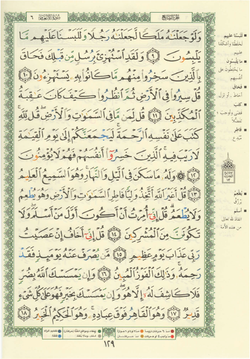 وَلَوْ جَعَلْنَٰهُ مَلَكًا لَّجَعَلْنَٰهُ رَجُلًا وَلَلَبَسْنَا عَلَيْهِم مَّا
يَلْبِسُونَ ۝٩ وَلَقَدِ ٱسْتُهْزِئَ بِرُسُلٍ مِّن قَبْلِكَ فَحَاقَ
بِٱلَّذِينَ سَخِرُوا۟ مِنْهُم مَّا كَانُوا۟ بِهِۦ يَسْتَهْزِءُونَ ۝١٠
قُلْ سِيرُوا۟ فِى ٱلْأَرْضِ ثُمَّ ٱنظُرُوا۟ كَيْفَ كَانَ عَٰقِبَةُ
ٱلْمُكَذِّبِينَ ۝١١ قُل لِّمَن مَّا فِى ٱلسَّمَٰوَٰتِ وَٱلْأَرْضِ قُل لِّلَّهِ
كَتَبَ عَلَىٰ نَفْسِهِ ٱلرَّحْمَةَ لَيَجْمَعَنَّكُمْ إِلَىٰ يَوْمِ ٱلْقِيَٰمَةِ
لَا رَيْبَ فِيهِ ٱلَّذِينَ خَسِرُوٓا۟ أَنفُسَهُمْ فَهُمْ لَا يُؤْمِنُونَ
۝١٢ وَلَهُۥ مَا سَكَنَ فِى ٱلَّيْلِ وَٱلنَّهَارِ وَهُوَ ٱلسَّمِيعُ ٱلْعَلِيمُ
۝١٣ قُلْ أَغَيْرَ ٱللَّهِ أَتَّخِذُ وَلِيًّا فَاطِرِ ٱلسَّمَٰوَٰتِ وَٱلْأَرْضِ وَهُوَ يُطْعِمُ
وَلَا يُطْعَمُ قُلْ إِنِّىٓ أُمِرْتُ أَنْ أَكُونَ أَوَّلَ مَنْ أَسْلَمَ وَلَا
تَكُونَنَّ مِنَ ٱلْمُشْرِكِينَ ۝١٤ قُلْ إِنِّىٓ أَخَافُ إِنْ عَصَيْتُ
رَبِّى عَذَابَ يَوْمٍ عَظِيمٍ ۝١٥ مَّن يُصْرَفْ عَنْهُ يَوْمَئِذٍ فَقَدْ
رَحِمَهُۥ وَذَٰلِكَ ٱلْفَوْزُ ٱلْمُبِينُ ۝١٦ وَإِن يَمْسَسْكَ ٱللَّهُ بِضُرٍّ
فَلَا كَاشِفَ لَهُۥٓ إِلَّا هُوَ وَإِن يَمْسَسْكَ بِخَيْرٍ فَهُوَ عَلَىٰ كُلِّ شَىْءٍ
قَدِيرٌ ۝١٧ وَهُوَ ٱلْقَاهِرُ فَوْقَ عِبَادِهِۦ وَهُوَ ٱلْحَكِيمُ ٱلْخَبِيرُ ۝١٨
١٢٩